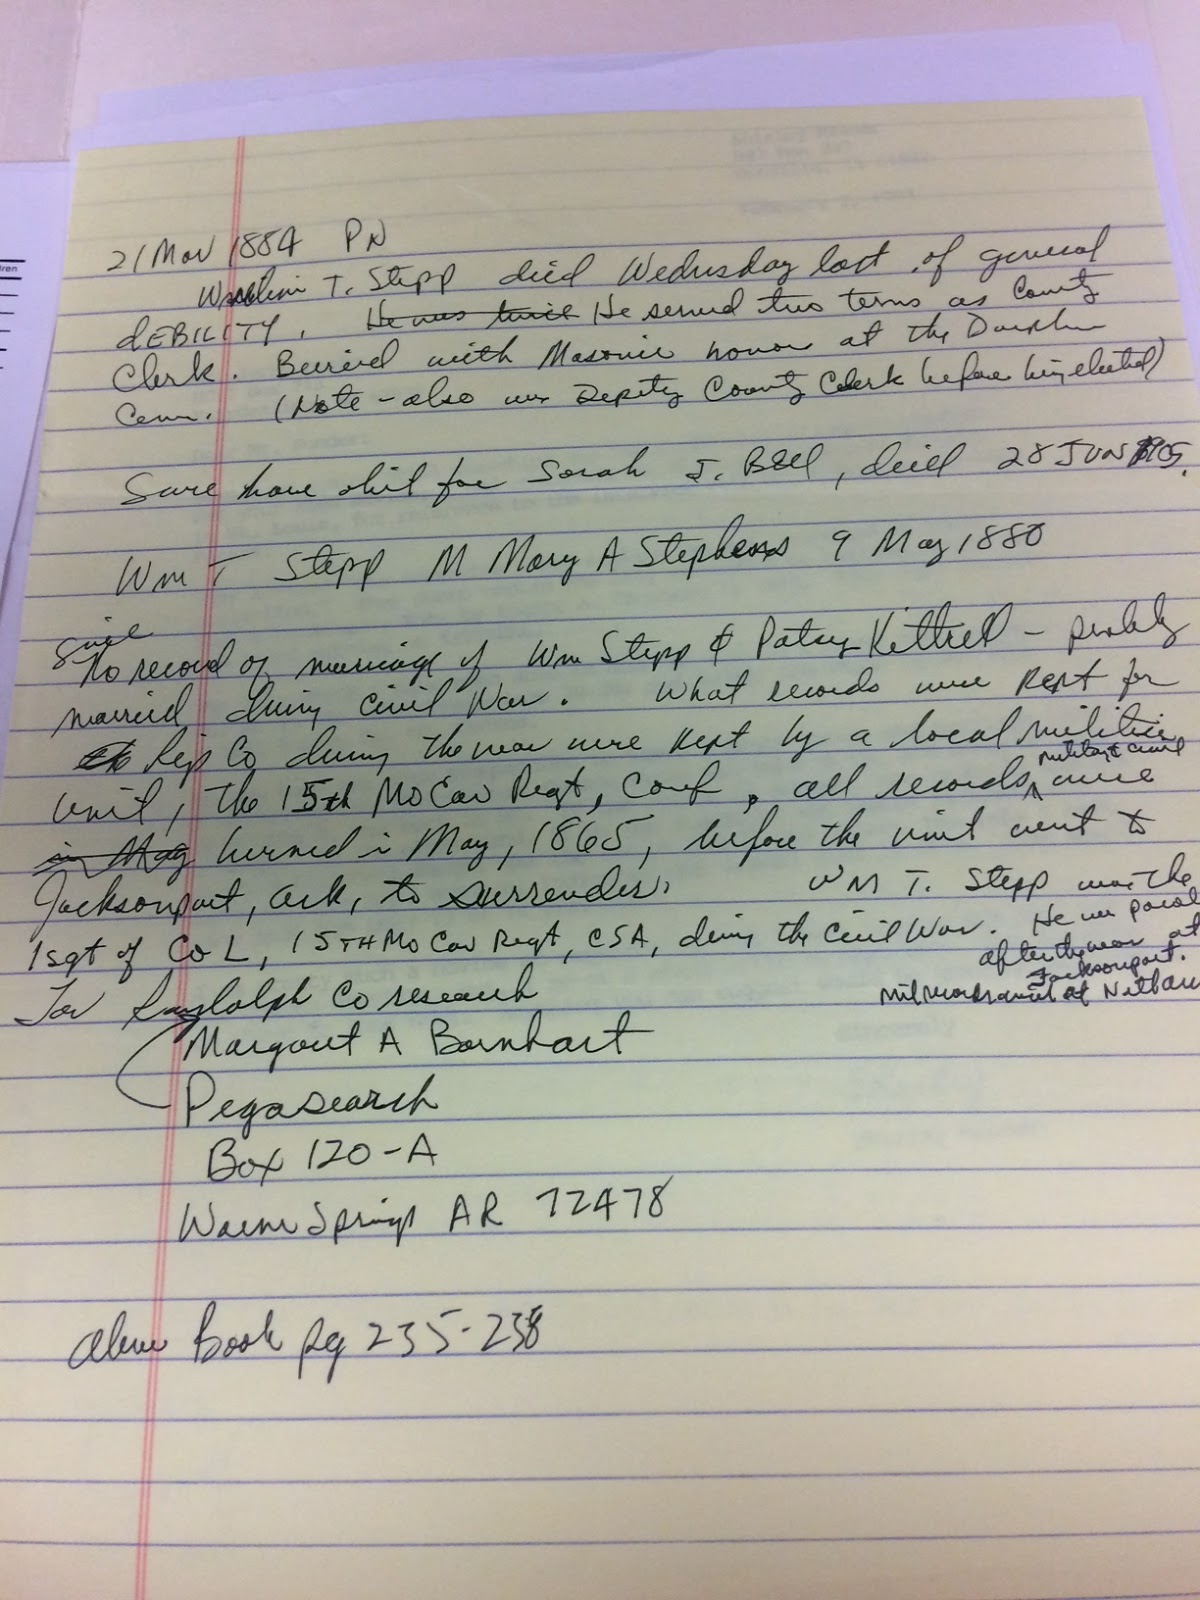 21 Mar 1884 PN
T. Stepp died Wednesday last of general
dEBILITY. He was twice He served two terms as County
Clerk. Buried with Masonic honor at the
Cem. (Note - also was Deputy County Clerk before being elected)
Sure have obit for Sarah J. Bell, died 28 JUN 1905.
Wm T Stepp M Mary A Stephens 9 May 1880
No record of marriage of Wm Stepp & Patsy Kittrell - probably
married during Civil War. What records were kept for
Rip Co during the war were kept by a local militia
military & civil
unit, the 15th Mo Cav Regt, Conf, all records were
in May burned in May, 1865, before the unit went to
Jacksonport, Ark, to surrender. WM T. Stepp was the
1sgt of Co L, 15TH Mo Cav Regt, CSA, during the Civil War. He was parol
after the war at
Jacksonport.
Mil records at
For Randolph Co research
Margaret A Barnhart
Pegasearch
Box 120-A
Warm Springs AR 72478
Book pg 235-238